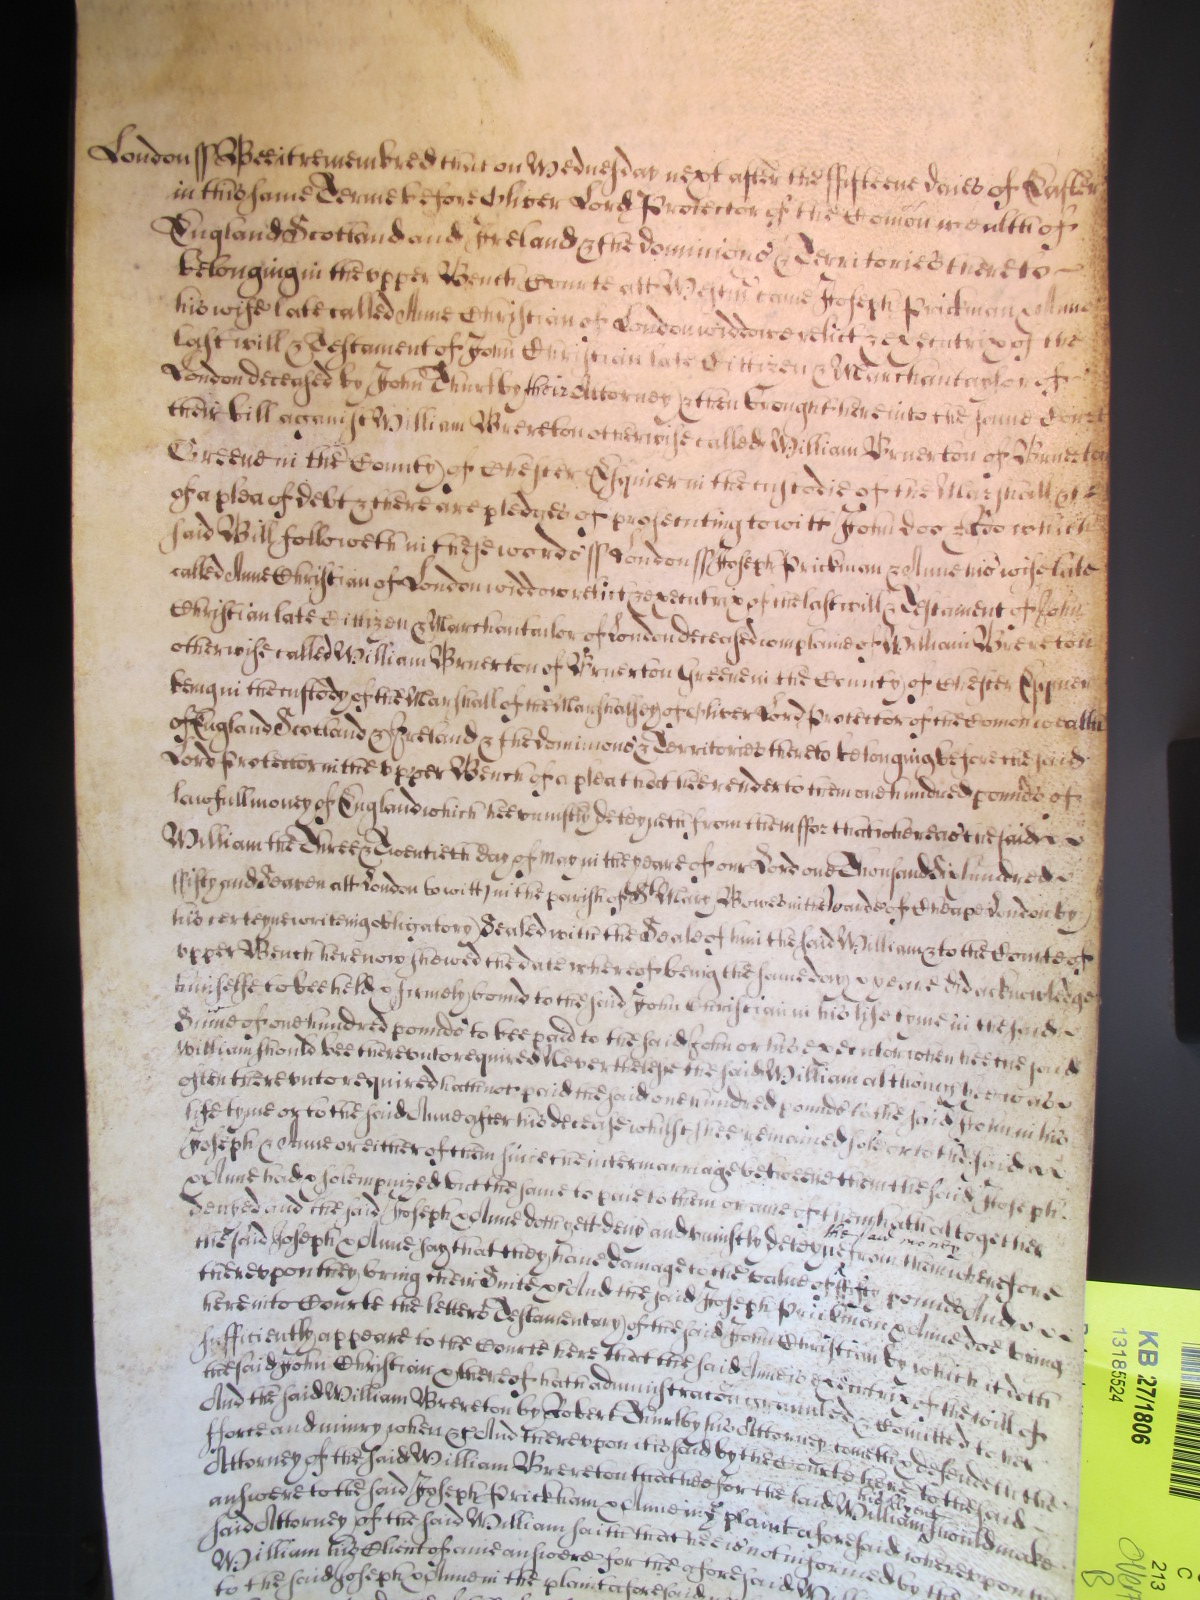 London ss Bee it remembred that on Wednesday next after the ffifteene daies of Easter
in this same Terme before Oliver Lord Protector of the Comon wealth of
England Scotland and Ireland & the dominions & Territories thereto
belonging in the upper Bench Courte att Westmr came Joseph Prickman & Anne
his wife late called Anne Christian of London widdowe relict & executrix of the
last will & Testament of John Christian late Cittizen & Marchantaylor of
London deceased by John Thurlby their Attorney & then brought here into the same Court
their bill against William Brereton otherwise called William Bruerton of Bruerton
Greene in the County of Chester Esquier in the custodie of the Marshall &c
of a plea of debt & there are pledges of prosecuting to witt John Doe & Roe which
said Bill followeth in these words ss London ss Joseph Prickman & Anne his wife late
called Anne Christian of London widdow relict & executrix of the last will & Testament of John
Christian late Cittizen & Marchantailor of London deceased complaine of William Brereton
otherwise called William Bruerton of Bruerton Greene in the County of Chester Esquier
being in the custody of the Marshall of the Marshalsey of Oliver Lord Protector of the Comon wealth
of England Scotland & Ireland & the dominions & Territories thereto belonging before the said
Lord Protector in the upper Bench of a plea that hee render to them one hundred pounds of
lawfull money of England which hee uniustly deteyneth from them ffor that whereas the said
William the Three & Twentieth day of May in the yeare of our Lord one Thousand Six hundred
ffifty and Seaven att London to witt in the parish of St Mary Bowe in the Warde of Cheape London by
his certeyne writeing obligatory Sealed with the Seale of him the said William & to the Courte of
upper Bench here now shewed the date whereof being the same day & yeare did acknowledge
himselfe to bee held & firmely bound to the said John Christian in his life tyme in the said
Summe of one hundred pounds to bee paid to the said John or his executor when hee the said
William should bee thereunto required Neverthelesse the said William although hee was
often thereunto required hath not paid the said one hundred pounds to the said John in his
life tyme or to the said Anne after his decease whilst shee remained sole or to the said
Joseph & Anne or either of them since the intermarriage betweene them the said Joseph
& Anne had & solempnized but the same to paie to them or anie of them hath altogether
denyed and the said Joseph & Anne doth yett deny and uniustly deteyne the said money from them wherefore
the said Joseph & Anne say that they have damage to the value of ffifty pounds And
thereupon they bring their Suite &c And the said Joseph Prickman & Anne doe bring
here into Courte the letters Testamentory of the said John Christian by which it doth
sufficiently appeare to the Courte here that the said Anne is executrix of the will of
the said John Christian & thereof hath administracon graunted & Comitted to her
And the said William Brereton by Robert Thurlby his Attorney cometh & defendeth the
fforce and iniury when &c And thereupon it is said by the Courte here to the said
Attorney of the said William Brereton that hee for the said William his Client should make
answere to the said Joseph Prickman & Anne in ye plaint aforesaid whereupon the
said Attorney of the said William saith that hee is not informed by the
William his Client of anie answere for the aforesaid William
to the said Joseph & Anne in the plaint aforesaid
KB 27/1806
13185524
C
213